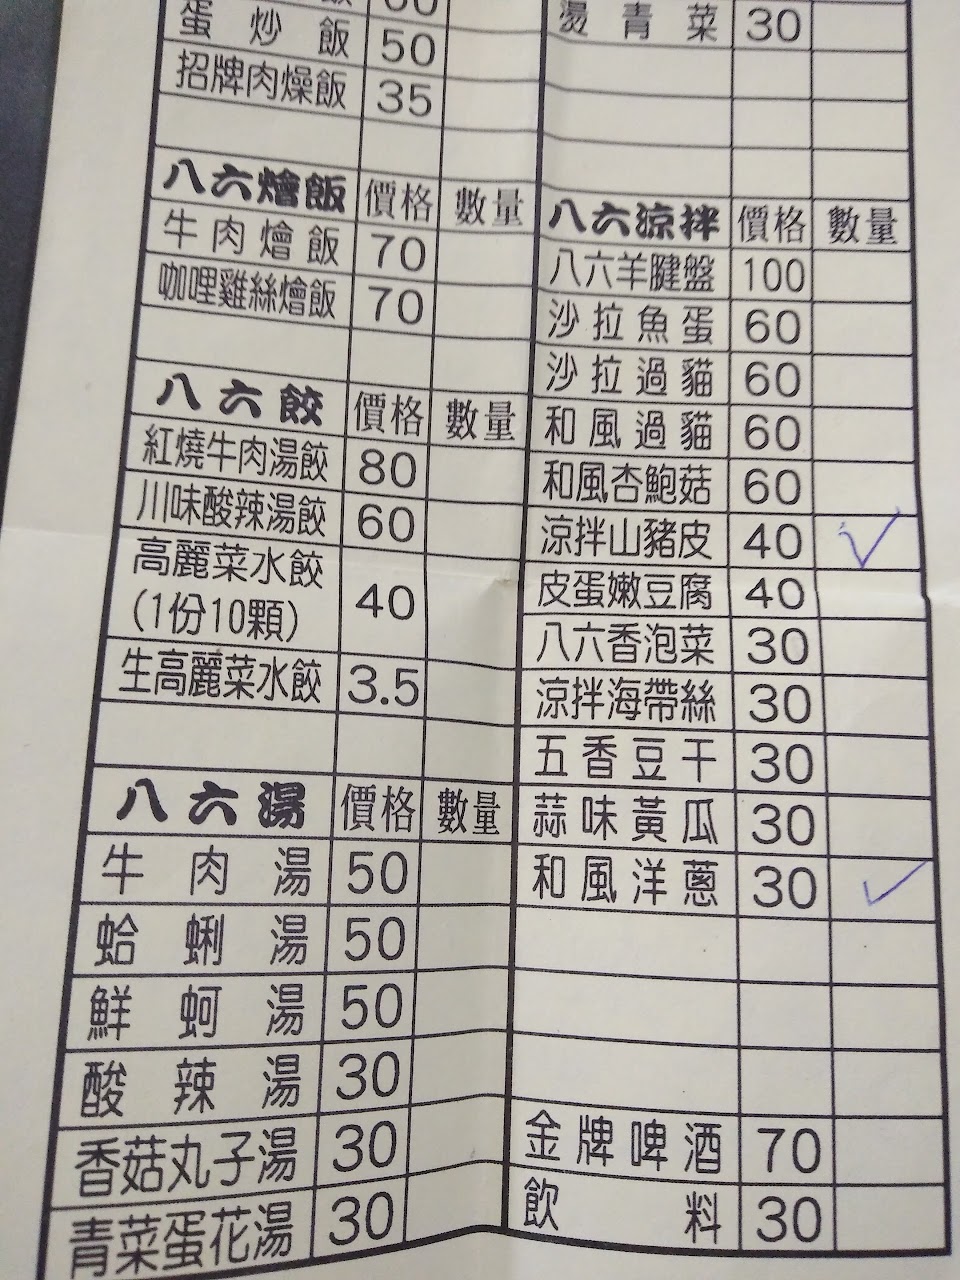 蛋炒飯 50
招牌肉燥飯 35
八六燴飯 價格 數量
牛肉燴飯 70
咖哩雞絲燴飯 70
八六餃 價格 數量
紅燒牛肉湯餃 80
川味酸辣湯餃 60
高麗菜水餃
(1份10顆) 40
生高麗菜水餃 3.5
八六湯 價格 數量
牛肉湯 50
蛤蜊湯 50
鮮蚵湯 50
酸辣湯 30
香菇丸子湯 30
青菜蛋花湯 30
燙青菜 30
八六涼拌 價格 數量
八六羊腱盤 100
沙拉魚蛋 60
沙拉過貓 60
和風過貓 60
和風杏鮑菇 60
涼拌山豬皮 40 ✓
皮蛋嫩豆腐 40
八六香泡菜 30
涼拌海帶絲 30
五香豆干 30
蒜味黃瓜 30
和風洋蔥 30 ✓
金牌啤酒 70
飲料 30